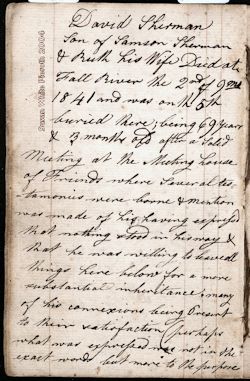 David Sherman
Son of Samson Sherman
& Ruth his Wife Died at
Fall River the 2nd of 9mo
1841 and was on the 5th
buried there; being 69 years
& 3 months old after a Solid
Meeting at the Meeting house
of Friends where Several tes
tamonies were borne & mention
was made of his having expressd
that nothing stood in his way &
that he was willing to leave all
things here below for a more
substantial inheritance; many
of his connexions being present
to their satisfaction (perhaps
what was expressed was not in the
exact words but more to the purpose
Susan White Pieroth 2004